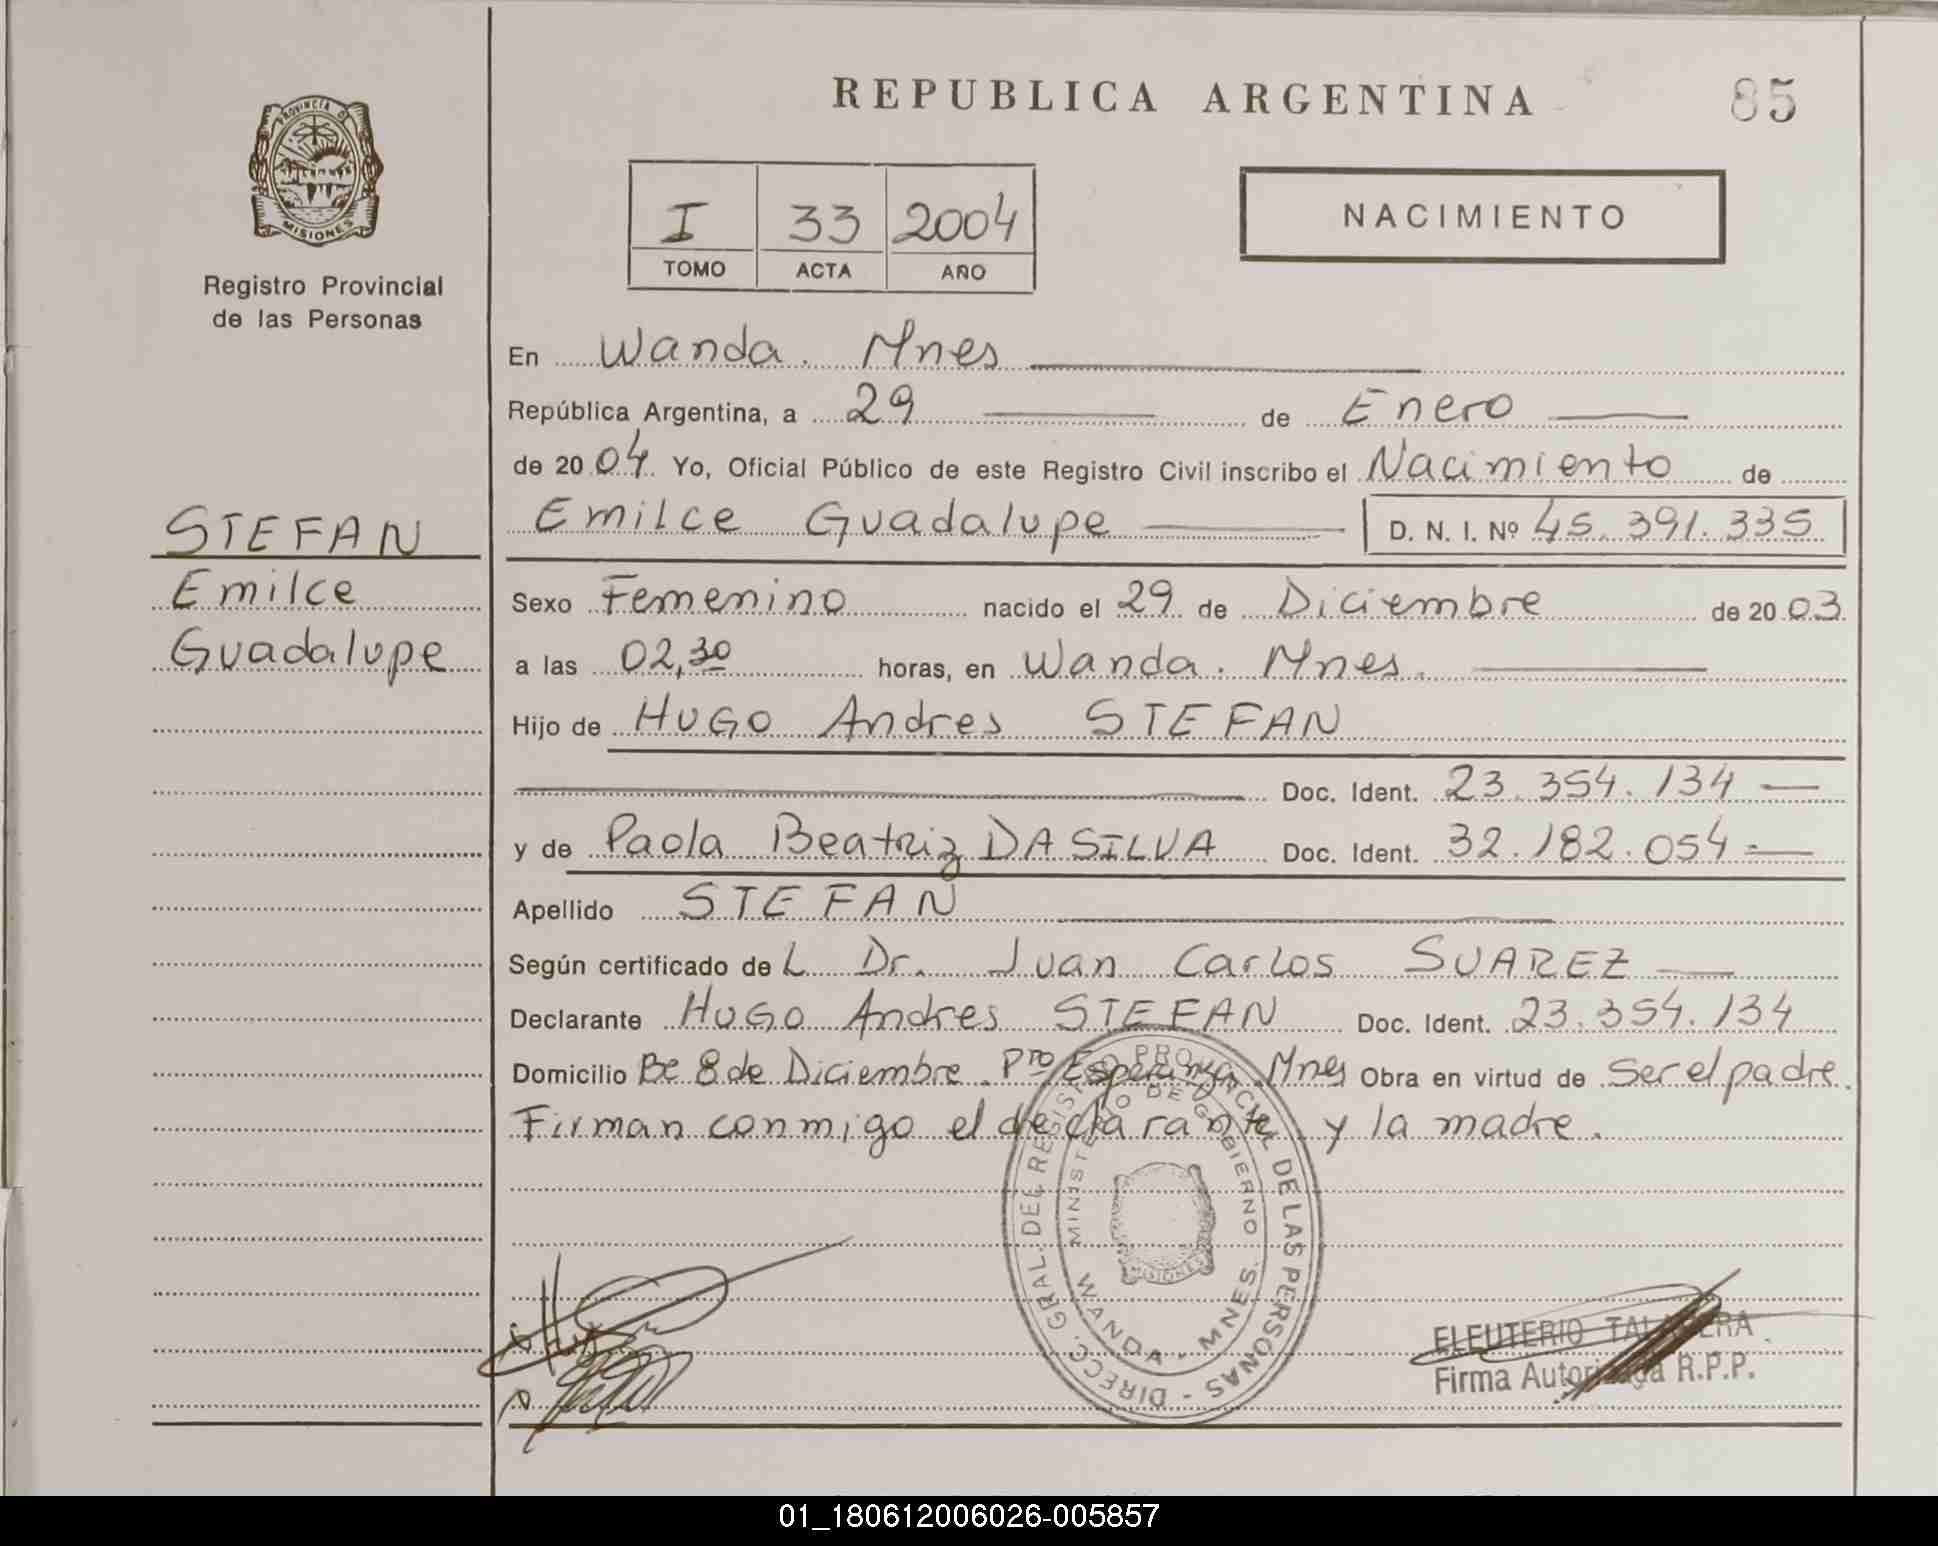 REPUBLICA ARGENTINA
85
PROVINCIA D
MISIONES
Registro Provincial
de las Personas
I 33 2004
TOMO ACTA AÑO
NACIMIENTO
En Wanda. Mnes
República Argentina, a 29 de Enero
de 2004 Yo, Oficial Público de este Registro Civil inscribo el Nacimiento de
Emilce Guadalupe D. N. I. Nº 45.391.335
STEFAN
Emilce
Guadalupe
Sexo Femenino nacido el 29 de Diciembre de 2003
a las 02,30 horas, en Wanda. Mnes.
Hijo de HUGO Andres STEFAN
Doc. Ident. 23.354.134
y de Paola Beatriz DA SILVA Doc. Ident. 32.182.054
Apellido STEFAN
Según certificado de L Dr. Juan Carlos SUAREZ
Declarante HUGO Andres STEFAN Doc. Ident. 23.354.134
Domicilio Bº 8 de Diciembre. Pto Esperanza. Mnes Obra en virtud de Ser el padre.
Firman conmigo el declarante y la madre.
DIRECC. GRAL. DEL REGISTRO PROVINCIAL DE LAS PERSONAS
MINISTERIO DE GOBIERNO
MISIONES
WANDA - MNES.
ELEUTERIO TALAVERA
Firma Autorizada R.P.P.
01_180612006026-005857